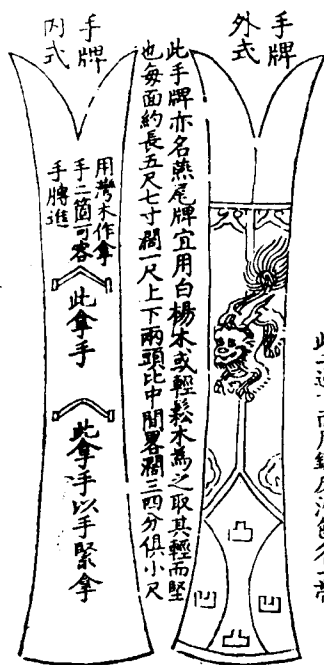 手牌
外式
此手牌亦名燕尾牌宜用白楊木或輕鬆木為之取其輕而堅
也每面約長五尺七寸濶一尺上下兩頭比中間畧濶三四分俱小尺
手牌
內式
用灣木作拿
手二箇可容
手膊進
此拿手
此拿手以手緊拿